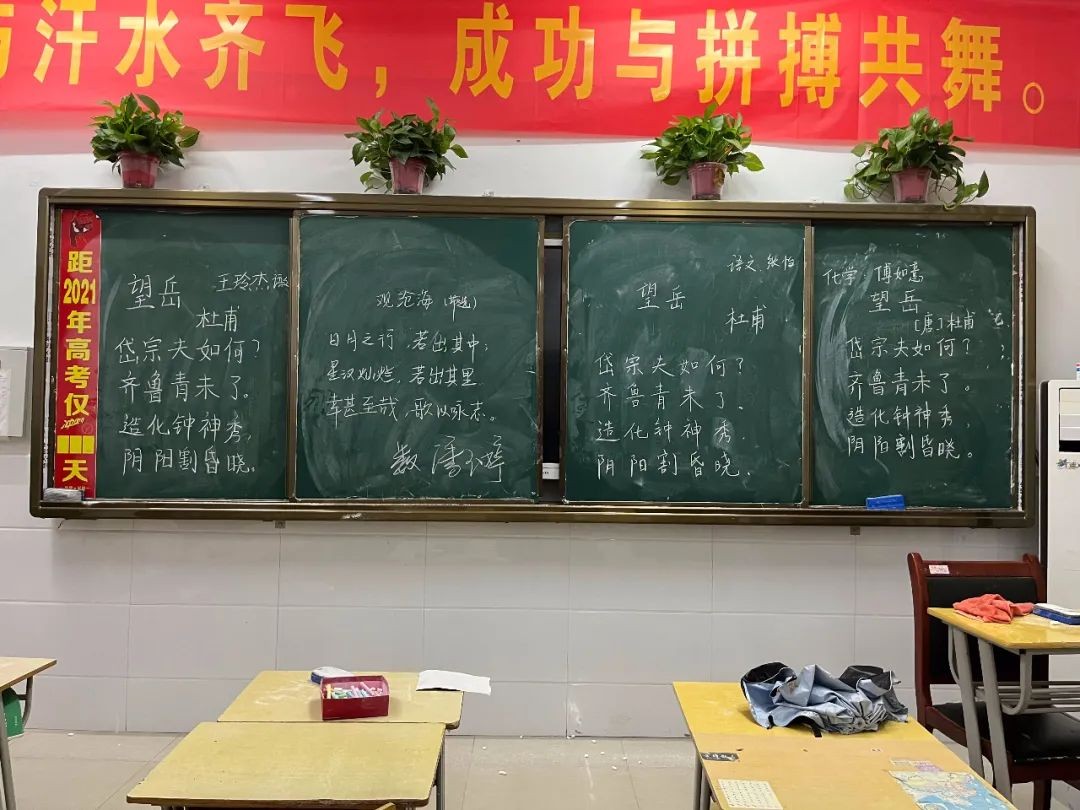 汗水齐飞，成功与拼搏共舞。
距
2021
年
高
考
仅
天
望岳
杜甫
岱宗夫如何？
齐鲁青未了。
造化钟神秀，
阴阳割昏晓。
观沧海
日月之行，若出其中；
星汉灿烂，若出其里
幸甚至哉，歌以咏志。
语文
望岳
杜甫
岱宗夫如何？
齐鲁青未了.
造化钟神秀.
阴阳割昏晓
化学 傅如意
望岳
[唐]杜甫
岱宗夫如何？
齐鲁青未了。
造化钟神秀，
阴阳割昏晓。